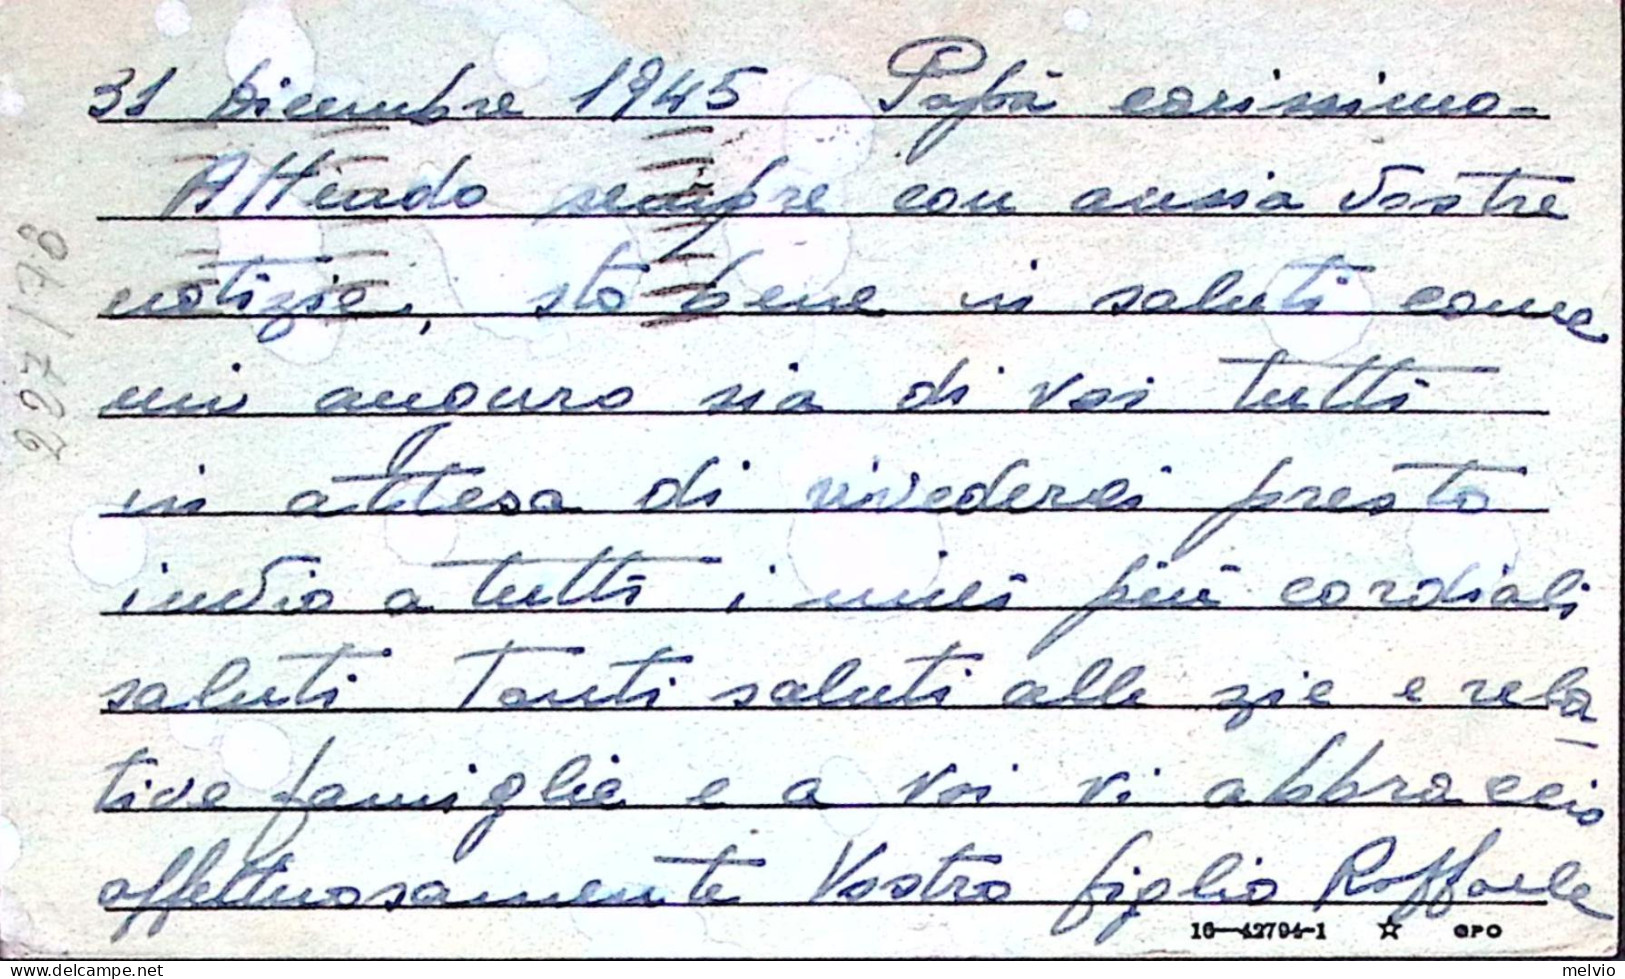 31 Dicembre 1945 Papà carissimo -
Attendo sempre con ansia Vostre
notizie, sto bene in saluti come
mi auguro sia di voi tutti
in attesa di rivederci presto
invio a tutti i miei più cordiali
saluti Tanti saluti alle zie e rela-
tive famiglie e a Voi vi abbraccio
affettuosamente Vostro figlio Raffaele
227/78
16—42794-1 ☆ GPO
delcampe.net
melvio